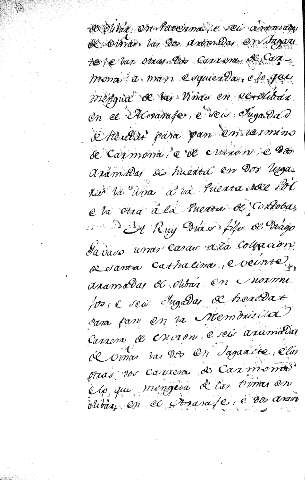 de olibar en Paterna e seis aranzadas
de viñas las dos aranzadas en Sagaze
te e las otras dos Carrera de Car-
mona a man esquierda, e lo que
mengua de las viñas en olibar
en el Alxarafe, e seis Jugadas
de heredat para pan en termino
de Carmona, e de e dos
aranzadas de huerta en dos luga-
res la una a la Puerta del Sol
e la otra a la Puerta de Cordoba.
A Ruy Diaz fijo de Diago
unas casas a la Collacion
de Santa Cathalina, e veinte
aranzadas de olibar en
e seis Jugadas de heredat
para pan en la Membrilla
Carrera de e seis aranzadas
de viñas las dos en Sagazete, e las
otras dos Carrera de Carmona
e lo que mengua de las viñas en
olibar en el Alxarafe, e dos aranz